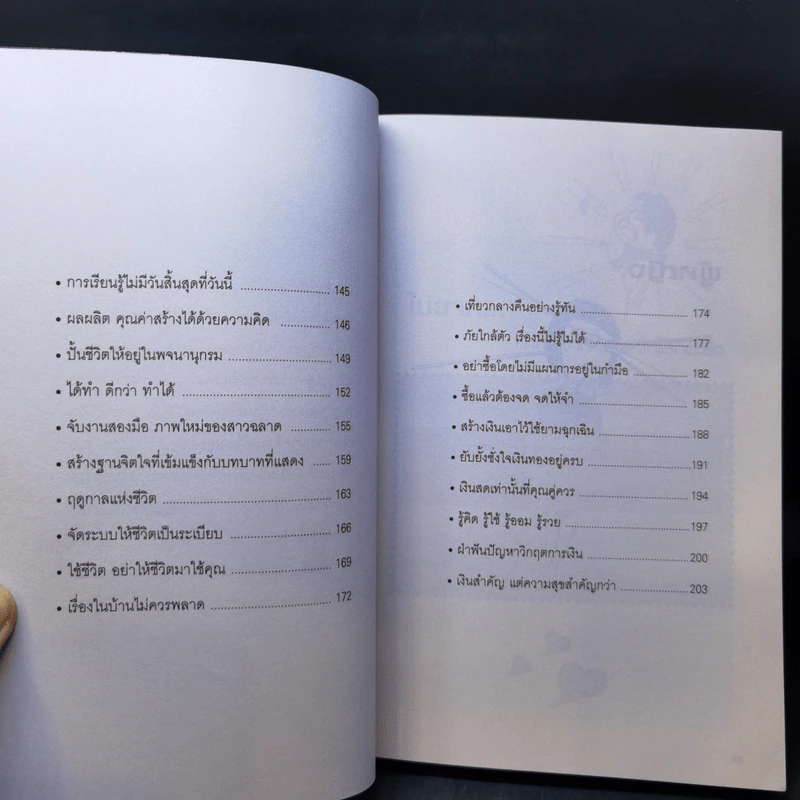 • การเรียนรู้ไม่มีวันสิ้นสุดที่วันนี้ ........................ 145
• ผลผลิต คุณค่าสร้างได้ด้วยความคิด ................ 146
• ปั้นชีวิตให้อยู่ในพจนานุกรม ........................... 149
• ได้ทำ ดีกว่า ทำได้ ........................................ 152
• จับงานสองมือ ภาพใหม่ของสาวฉลาด ............. 155
• สร้างฐานจิตใจที่เข้มแข็งกับบทบาทที่แสดง ..... 159
• ฤดูกาลแห่งชีวิต ........................................... 163
• จัดระบบให้ชีวิตเป็นระเบียบ ........................... 166
• ใช้ชีวิต อย่าให้ชีวิตมาใช้คุณ ........................... 169
• เรื่องในบ้านไม่ควรพลาด ................................ 172
• เที่ยวกลางคืนอย่างรู้ทัน ................................ 174
• ภัยใกล้ตัว เรื่องนี้ไม่รู้ไม่ได้ ............................. 177
• อย่าซื้อโดยไม่มีแผนการอยู่ในกำมือ ................ 182
• ซื้อแล้วต้องจด จดให้จำ ................................ 185
• สร้างเงินเอาไว้ใช้ยามฉุกเฉิน .......................... 188
• ยับยั้งชั่งใจเงินทองอยู่ครบ ............................. 191
• เงินสดเท่านั้นที่คุณคู่ควร ............................... 194
• รู้คิด รู้ใช้ รู้ออม รู้รวย ................................... 197
• ฝ่าฟันปัญหาวิกฤตการเงิน ............................. 200
• เงินสำคัญ แต่ความสุขสำคัญกว่า .................... 203